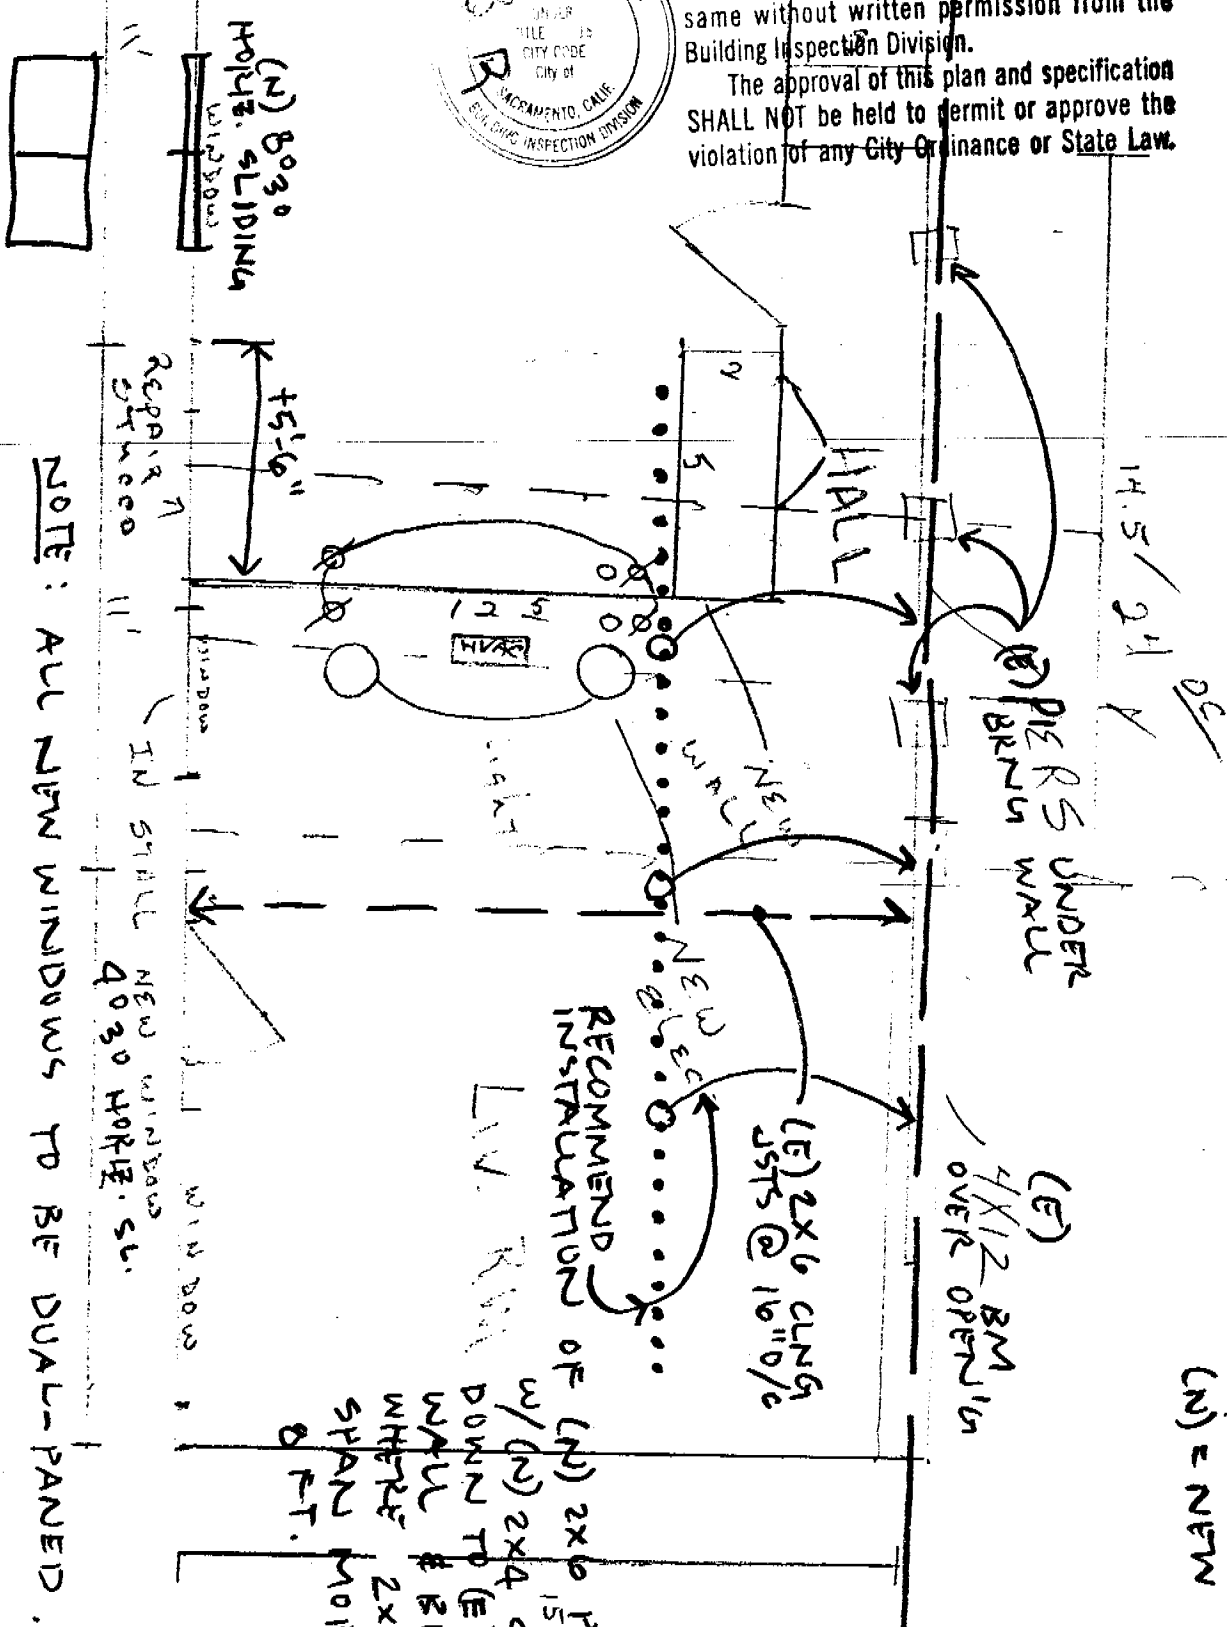 same without written permission from the
Building Inspection Division.
The approval of this plan and specification
SHALL NOT be held to permit or approve the
violation of any City Ordinance or State Law.
CITY CODE
City of
SACRAMENTO, CALIF.
BUILDING INSPECTION DIVISION
(N) 8030
HORIZ. SLIDING
WINDOW
±5'-6"
REPAIR
STUCCO
HALL
5
14.5 / 24
OC
(E) PIERS UNDER
BRNG WALL
1 2 5
HVAC
WINDOW
NEW
WALL
LIGHT
NEW
ELEC
INSTALL NEW WINDOW
4030 HORIZ. SL.
WINDOW
LIV. RM
RECOMMEND
INSTALLATION OF (N) 2X6
W/(N) 2X4
DOWN TO (E
WALL &
WHERE 2X
SPAN MOR
8 FT.
(E) 2X6 CLNG
JSTS @ 16" O/C
(E)
4X12 BM
OVER OPEN'G
(N) = NEW
NOTE: ALL NEW WINDOWS TO BE DUAL-PANED.